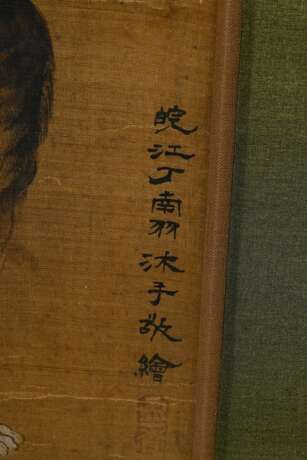 皖江丁南羽沐手敬繪